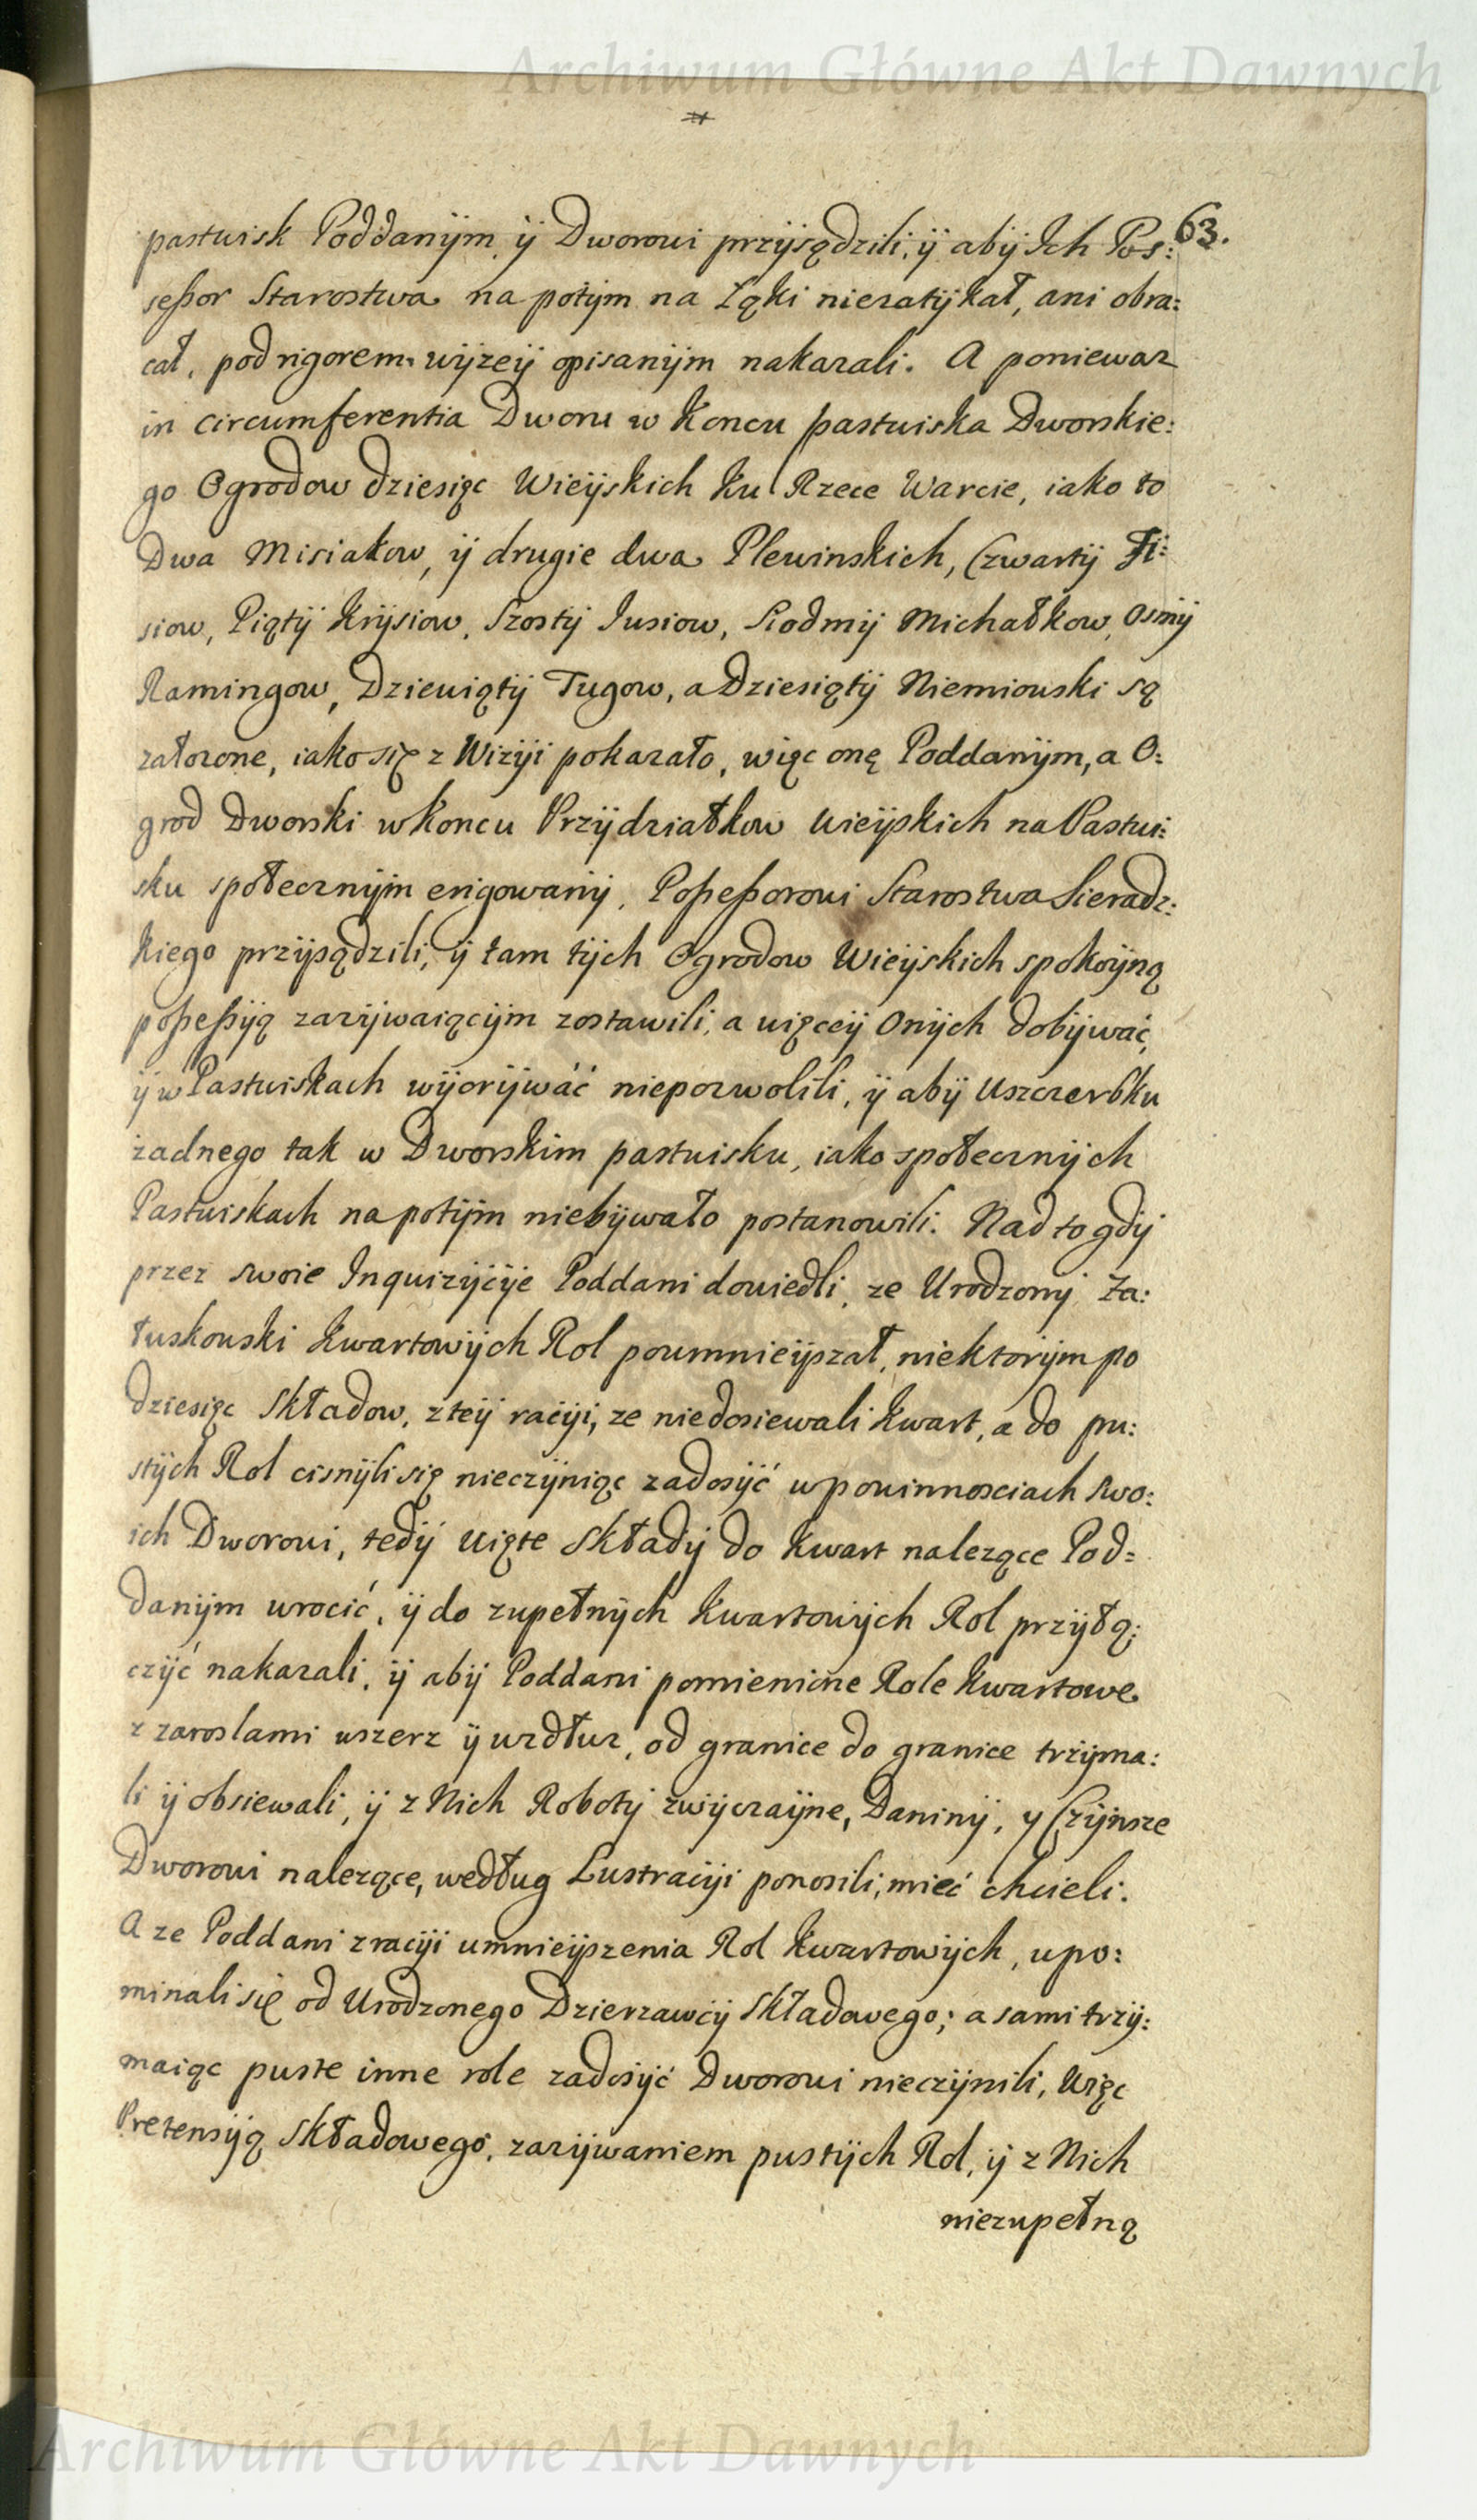 Archiwum Główne Akt Dawnych
63.
pastwisk Poddanÿm, ÿ Dworowi przÿsądzili, ÿ abÿ Ich Pos:
seßor Starostwa na potÿm na Łąki niezatÿkał, ani obra:
cał, pod rigorem wÿzeÿ opisanÿm nakazali. A poniewaz
in circumferentia Dworu w Koncu pastwiska Dworskie:
go Ogrodow dziesięc Wieÿskich ku Rzece Warcie, iako to
Dwa Misiakow, ÿ drugie dwa Plewinskich, Czwartÿ Fi:
siow, Piątÿ Krÿsiow, Szostÿ Jusiow, Siodmÿ Michałkow, Osmÿ
Ramingow, Dziewiątÿ Tugow, a Dziesiątÿ Niemiowski są
załozone, iako się z Wizÿi pokazało, więc onę Poddanÿm, a O:
grod Dworski w koncu Przÿdziałkow wieÿskich na Pastwi:
sku społecznÿm erigowanÿ, Poßeßorowi Starostwa Sieradz:
kiego przÿsądzili, ÿ tam tÿch Ogrodow Wieÿskich spokoÿną
poßeßÿą zazÿwaiącÿm zostawili, a więceÿ Onÿch dobÿwać,
ÿ w Pastwiskach wÿorÿwáć niepozwolili, ÿ abÿ Uszczerbku
zadnego tak w Dworskim pastwisku, iako społecznÿch
Pastwiskach na potÿm niebÿwało postanowili. Nad to gdÿ
przez swoie Inquizÿcÿe Poddani dowiedli, ze Urodzonÿ Za:
łuskowski Kwartowÿch Rol poumnieÿszał, niektorÿm po
dziesięc Składow, z teÿ racÿi, ze niedosiewali Kwart, a do pu:
stÿch Rol cisnÿli się nieczÿniąc zadosÿć w powinnosciach Swo:
ich Dworowi, tedÿ Uięte Składÿ do Kwart nalezące Pod=
danÿm wrocić, ÿ do zupełnÿch Kwartowÿch Rol przÿłą:
czÿć nakazali, ÿ abÿ Poddani pomienione Role Kwartowe
z zaroslami wszerz ÿ wzdłuz, od granice do granice trzÿma:
li ÿ obsiewali, ÿ z Nich Robotÿ zwÿczaÿne, Daninÿ, y Czÿnsze
Dworowi nalezące, według Lustracÿi ponosili, mieć chcieli.
A ze Poddani z racÿi umnieÿszenia Rol Kwartowÿch, upo:
minali się od Urodzonego Dzierzawcÿ Składowego; a sami trzÿ:
maiąc puste inne role zadosÿć Dworowi nieczÿnili, Więc
Pretensÿą Składowego, zazÿwaniem pustÿch Rol, ÿ z Nich
niezupełną
Archiwum Główne Akt Dawnych